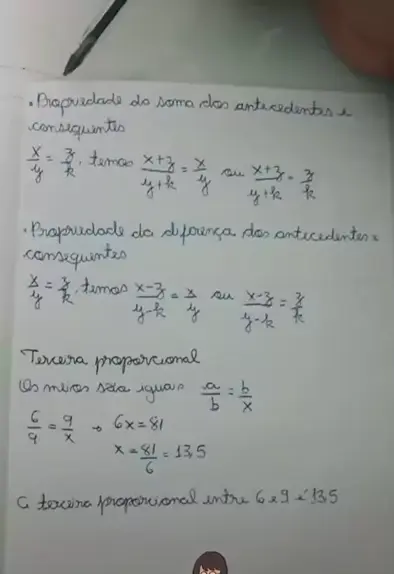 . Propriedade da soma dos antecedentes e
consequentes
x/y = z/k, temos x+z/y+k = x/y ou x+z/y+k = z/k
. Propriedade da diferença dos antecedentes e
consequentes
x/y = z/k, temos x-z/y-k = x/y ou x-z/y-k = z/k
Terceira proporcional
Os meios são iguais a/b = b/x
6/9 = 9/x → 6x = 81
x = 81/6 = 13,5
A terceira proporcional entre 6 e 9 é 13,5